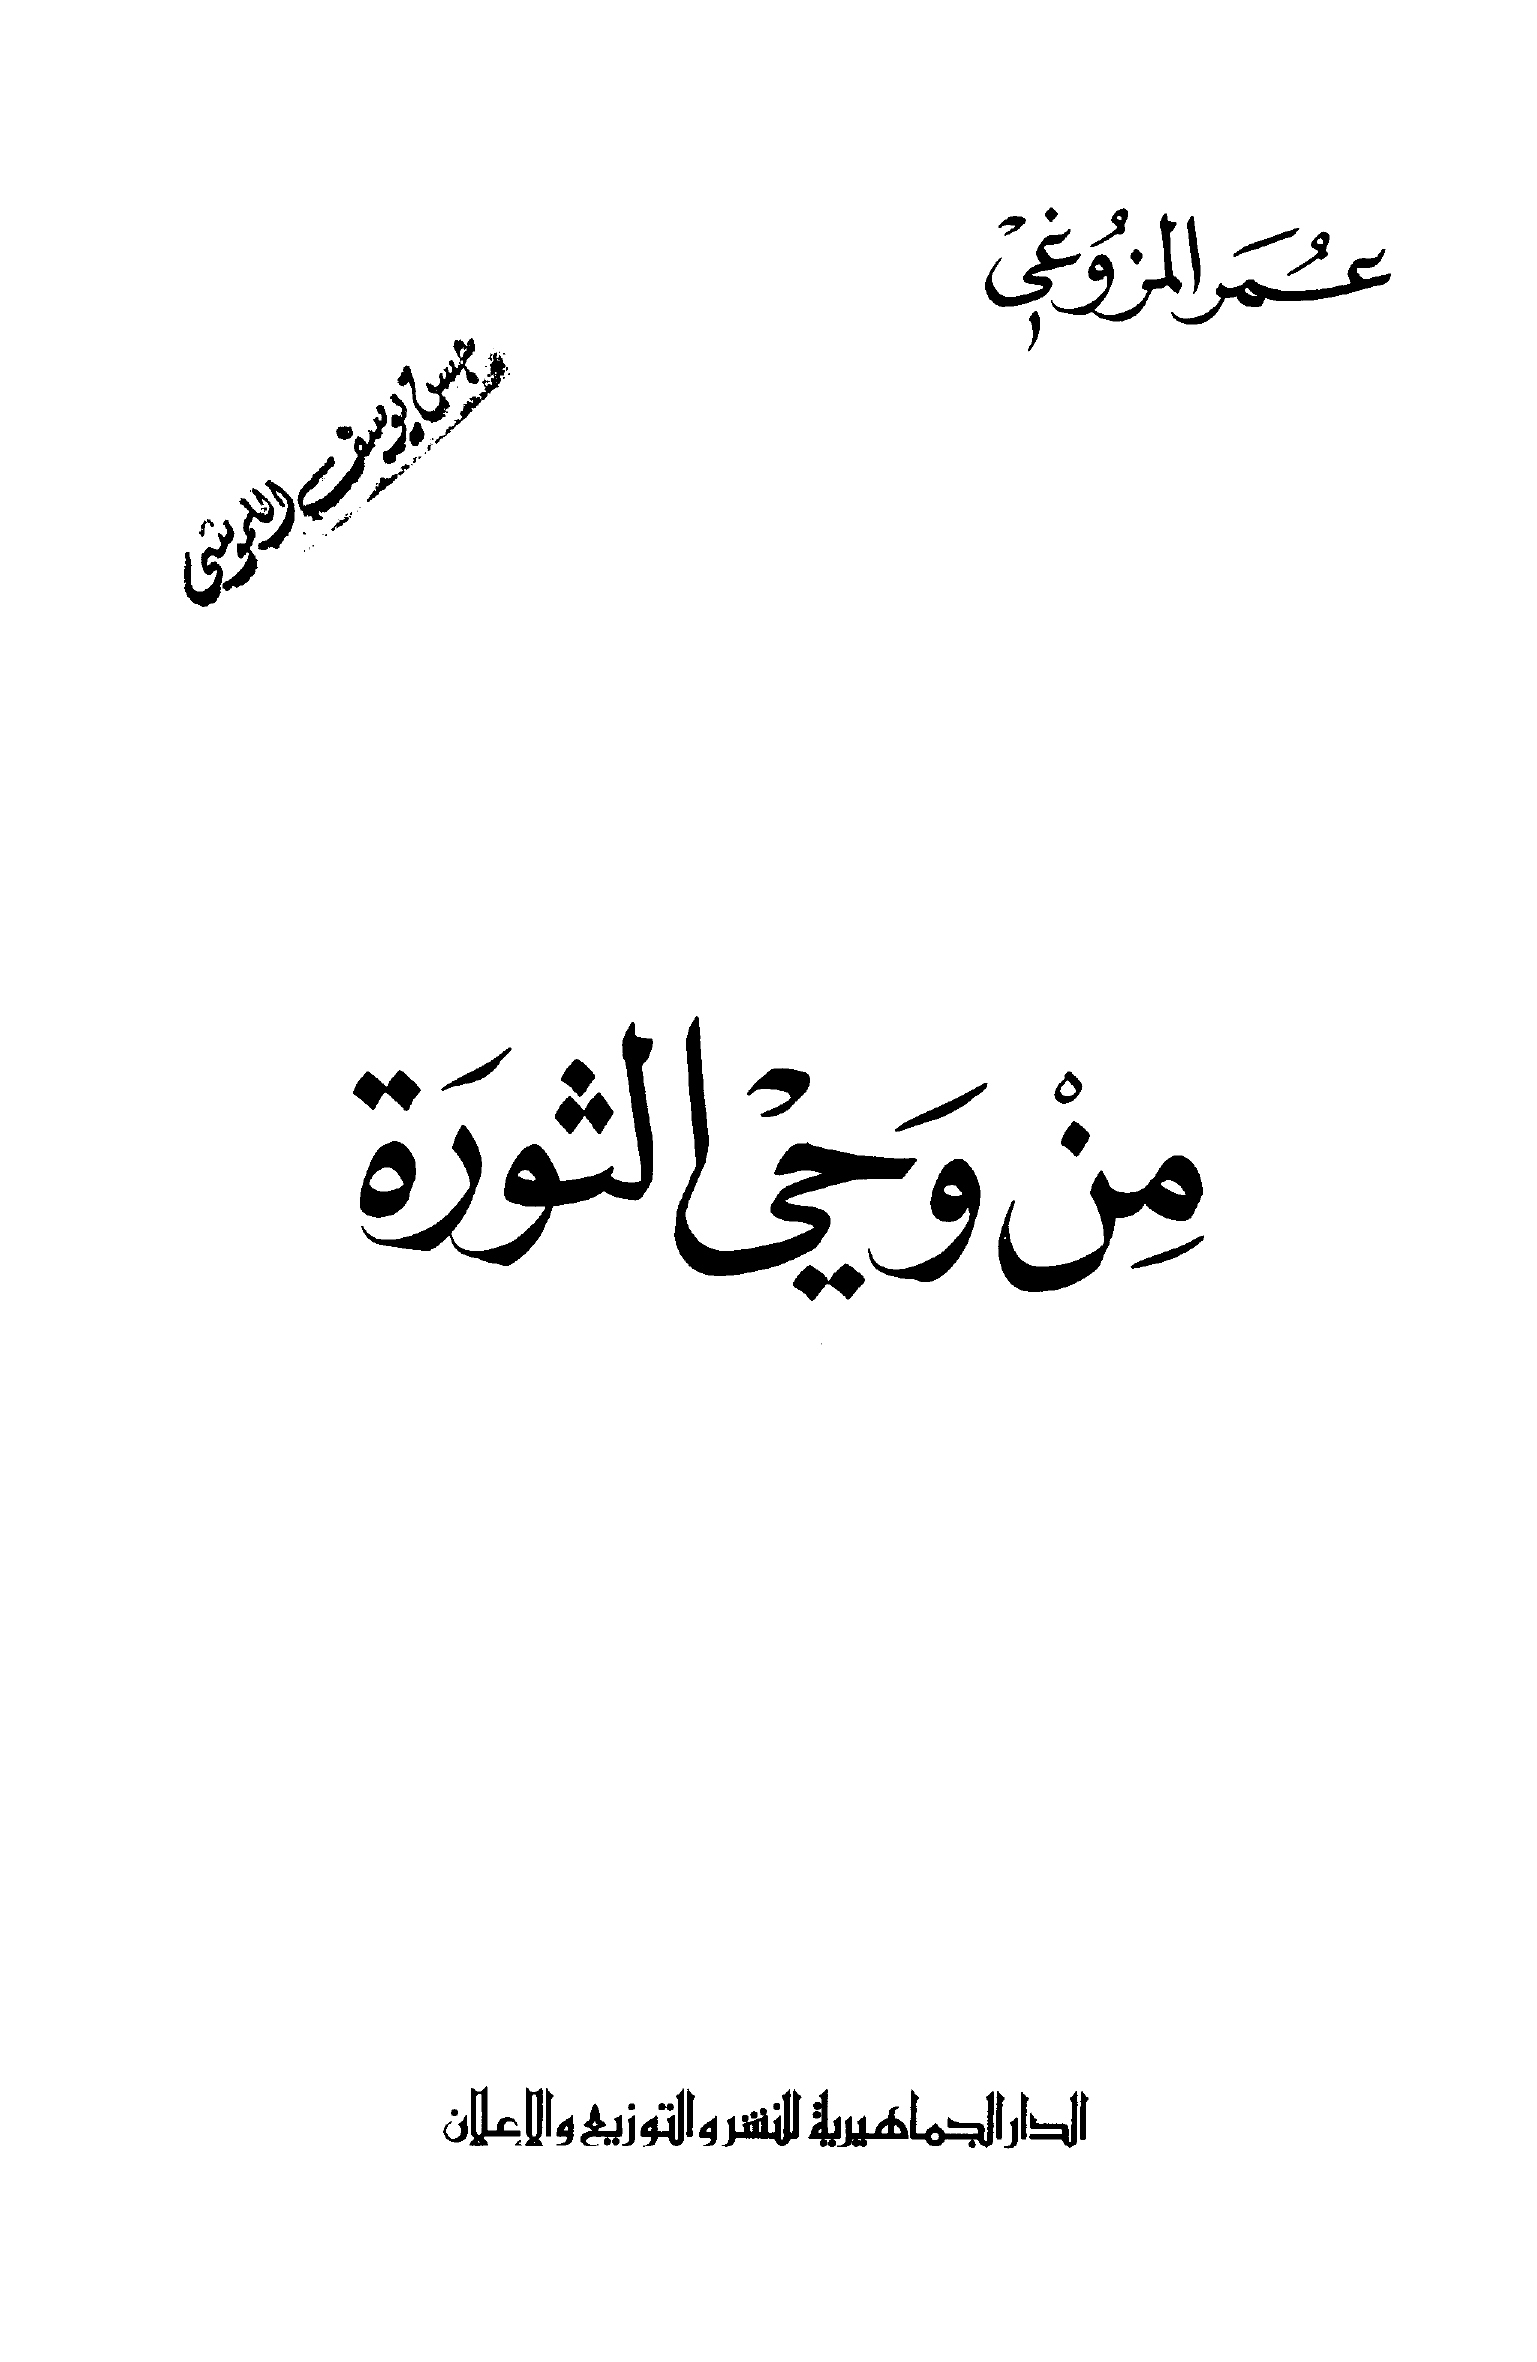 عُمَر المزُوغيْ
حسن يوسف
مِنْ وَحيْ الثورَة
الدار الجماهيرية للنشر والتوزيع والإعلان